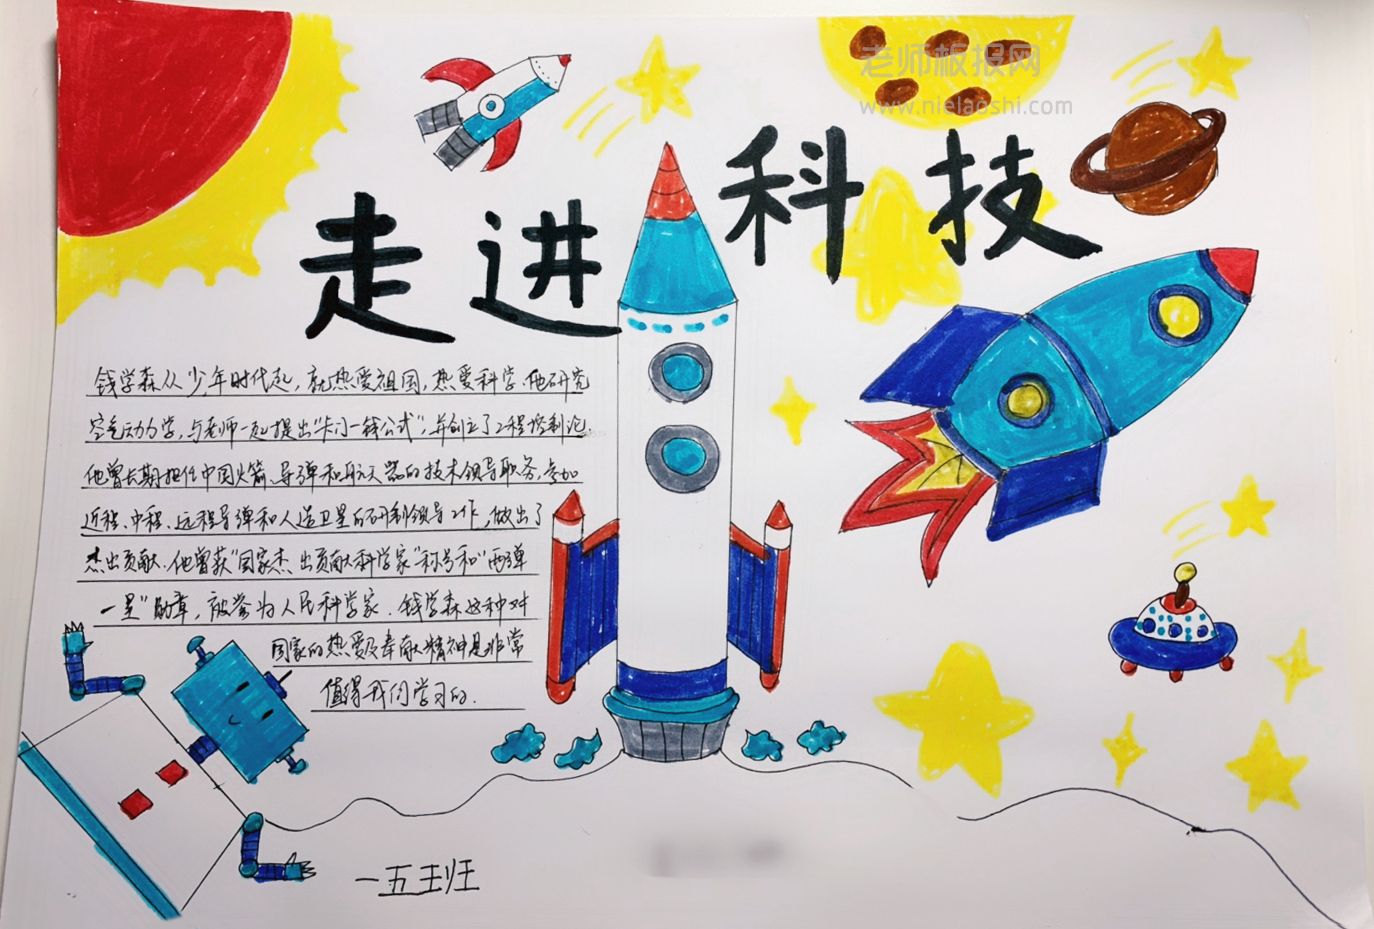 老师板报网
www.nielaoshi.com
走进科技
钱学森从少年时代起，就热爱祖国，热爱科学。他研究
空气动力学，与老师一起提出“卡门一钱公式”，并创立了工程控制论。
他曾长期担任中国火箭、导弹和航天器的技术领导职务，参加
近程、中程、远程导弹和人造卫星的研制领导工作，做出了
杰出贡献。他曾获“国家杰出贡献科学家”称号和“两弹
一星”勋章，被誉为人民科学家。钱学森这种对
国家的热爱及奉献精神是非常
值得我们学习的。
一五班